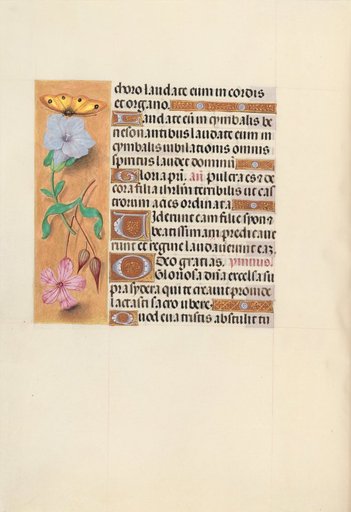 choro laudate eum in cordis
et organo.
Laudate eū in cymbalis be
nesonantibus laudate eum in
cymbalis iubilationis omnis
spiritus laudet dominū
Gloria pri. añ. Pulcra es et de
cora filia iherusalem terribilis ut cas
trorum acies ordinata
Viderunt eam filie syon et
beatissimam predicaue
runt et regine laudauerunt eaz.
Deo gratias. ymnus.
O Gloriosa dn̄a excelsa su
pra sydera qui te creauit prouide
lactasti sacro ubere.
Quod eua tristis abstulit tu